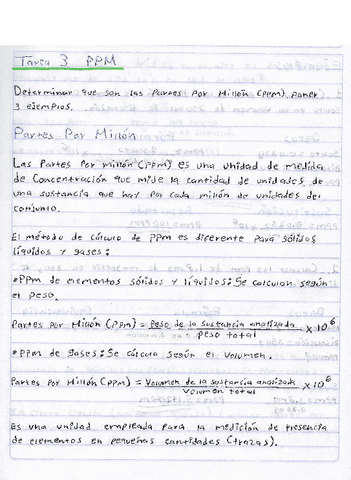 Tarea 3 PPM
Determinar que son las Partes Por Millón (PPM). Poner
3 ejemplos.
Partes Por Millón
Las Partes Por millón (PPM) es una unidad de medida
de Concentración que mide la cantidad de unidades de
una sustancia que hay por cada millón de unidades del
conjunto.
El método de cálculo de PPM es diferente para sólidos
líquidos y gases:
• PPM de elementos sólidos y líquidos: Se calculan según
el peso.
Partes por Millón (PPM) = Peso de la sustancia analizada / peso total × 10⁶
• PPM de gases: Se cálcula según el volumen.
Partes por Millón (PPM) = Volumen de la sustancia analizada / volumen total × 10⁶
Es una unidad empleada para la medición de presencia
de elementos en pequeñas cantidades (trazas).